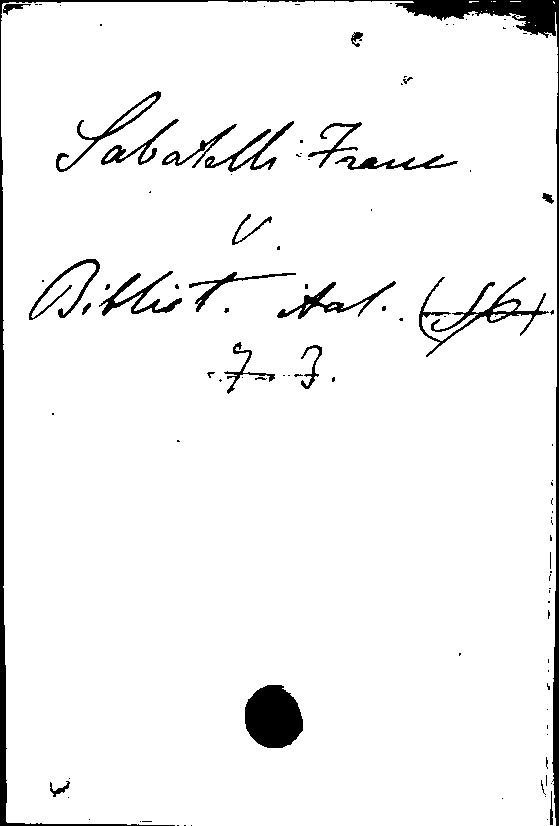 Sabatelli Franc
v.
Bibliot. ital. (56)
73.